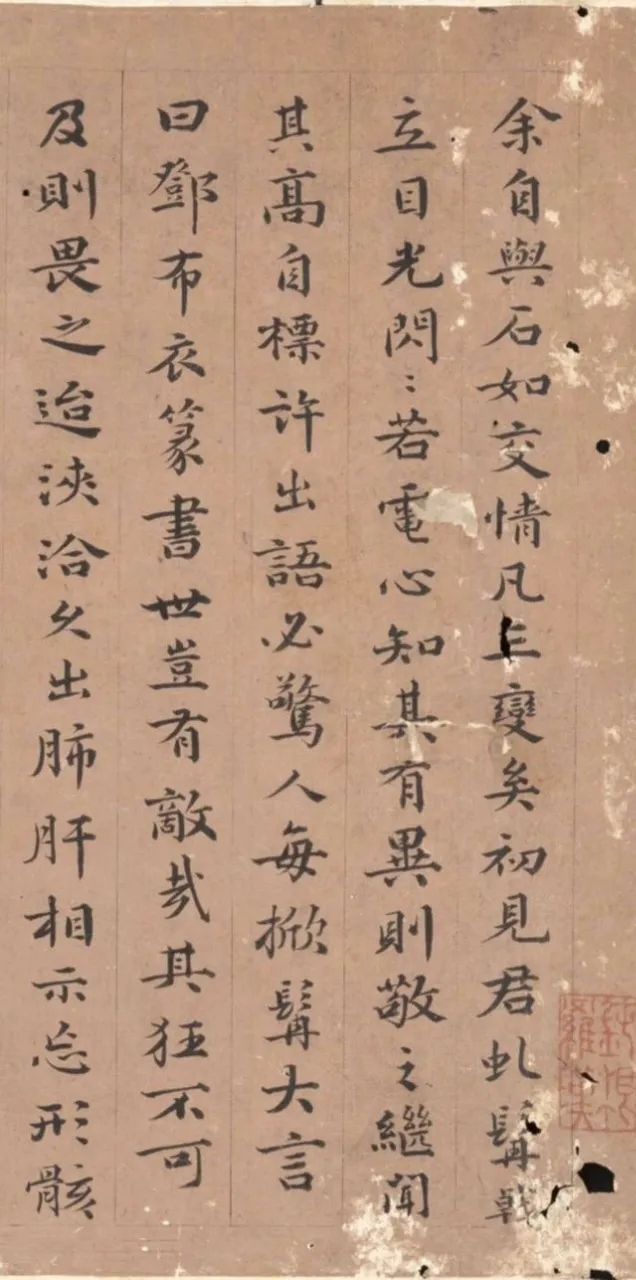 余自與石如交情凡三變矣初見君虬髯戟
立目光閃〻若電心知其有異則敬之繼聞
其高自標許出語必驚人每掀髯大言
曰鄧布衣篆書世豈有敵哉其狂不可
及則畏之迨浹洽久出肺肝相示忘形骸